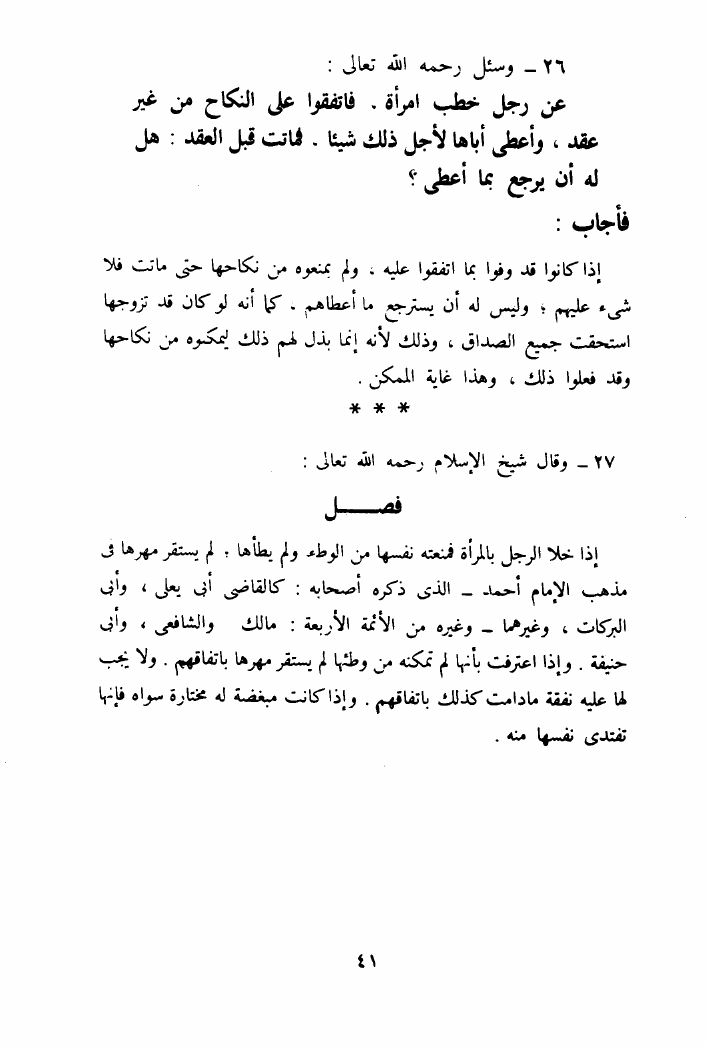 ٢٦ – وسئل رحمه الله تعالى :
عن رجل خطب امرأة . فاتفقوا على النكاح من غير
عقد ، وأعطى أباها لأجل ذلك شيئا . فماتت قبل العقد : هل
له أن يرجع بما أعطى ؟
فأجاب :
إذا كانوا قد وفوا بما اتفقوا عليه ، ولم يمنعوه من نكاحها حتى ماتت فلا
شيء عليهم ؛ وليس له أن يسترجع ما أعطاهم . كما أنه لو كان قد تزوجها
استحقت جميع الصداق ، وذلك لأنه إنما بذل لهم ذلك ليمكنوه من نكاحها
وقد فعلوا ذلك ، وهذا غاية الممكن .
* * *
٢٧ – وقال شيخ الإسلام رحمه الله تعالى :
فصـــل
إذا خلا الرجل بالمرأة فمنعته نفسها من الوطء ولم يطأها ؛ لم يستقر مهرها فى
مذهب الإمام أحمد – الذى ذكره أصحابه : كالقاضي أبى يعلى ، وأبى
البركات ، وغيرهما – وغيره من الأئمة الأربعة : مالك والشافعى ، وأبى
حنيفة . وإذا اعترفت بأنها لم تمكنه من وطئها لم يستقر مهرها باتفاقهم . ولا يجب
لها عليه نفقة مادامت كذلك باتفاقهم . وإذا كانت مبغضة له مختارة سواه فإنها
تفتدى نفسها منه .
٤١